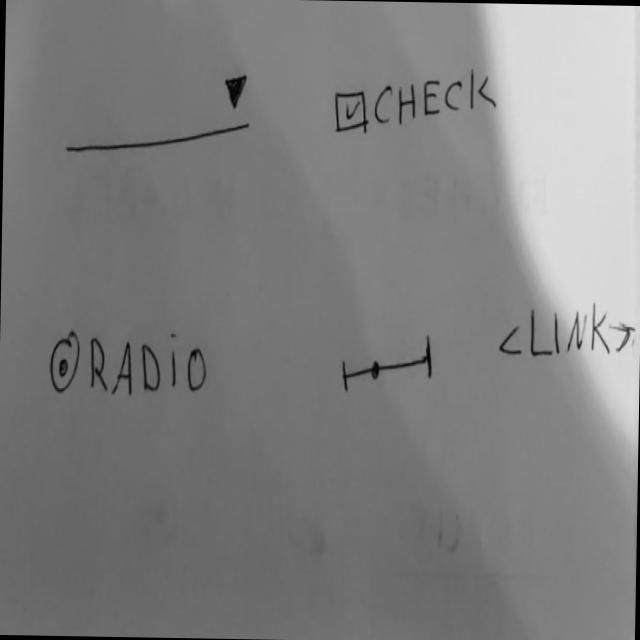 CHECK
RADIO
<LINK>